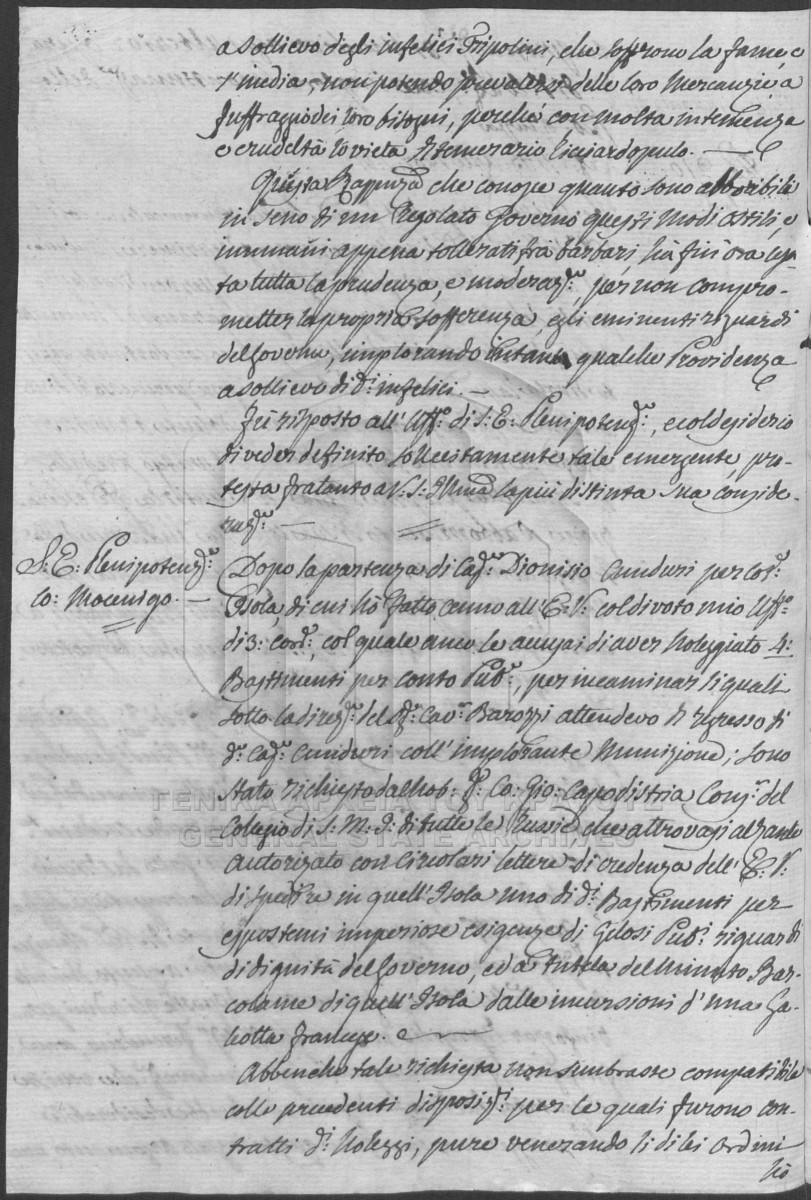 a sollievo degli infelici Tripolini, che soffrono la fame, e
l'inedia, non potendo prevalersi delle loro Mercanzie a
suffraggio dei loro bisogni, perché con molta intemenza
e crudeltà lo vieta il temerario Licciardopulo. —
Questa Rappnza che conosce quanto sono abboribili
in seno di un Regolato Governo questi modi ostili, e
inumani appena tollerati frà barbari, hà fin'ora usa-
ta tutta la prudenza, e moderazne, per non compro-
metter la propria sofferenza, e gli eminenti riguardi
del Governo, implorando intanto qualche Providenza
a sollievo di di infelici. —
Fù risposto all' Uffo di S: E: Plenipotenzo, e col desiderio
di veder definito sollecitamente tale emergente, pro-
testa fratanto a V: S: Illma la più distinta sua conside-
razne. —
S: E: Plenipotenzo
Co: Mocenigo. —
Dopo la partenza di Capn Dionisio Conduri per cotta
Isola, di cui hò fatto cenno all' E: V: col divoto mio Uffo
di 3: corrte, col quale anco le accusai di aver noleggiato 4:
Bastimenti per conto Pubco, per incaminar li quali
sotto la direzne del Sigr Cavr Barozzi attendevo il regresso di
do Capn Conduri coll' implorante Munizione; sono
stato richiesto dal Nob: Sr Co: Gio: Capodistria Consr del
Colegio di S: M: I: di tutte le Russie che attrovasi al Zante
Autorizato con Circolari lettere di credenza dell' E: V:
di spedire in quell' Isola uno di di Bastimenti per
espostemi imperiose esigenze di Gelosi Pubci riguardi
di dignità del Governo, ed a tutela del minuto Bar-
colame di quell' Isola dalle incursioni d'una Ga-
liotta francese.
Abbenche tale richiesta non sembrasse compatibile
colle precedenti disposizni per le quali furono con-
tratti di Noleggi, pure venerando li di lei ordini
hò
ΓΕΝΙΚΑ ΑΡΧΕΙΑ ΤΟΥ ΚΡΑΤΟΥΣ
GENERAL STATE ARCHIVES